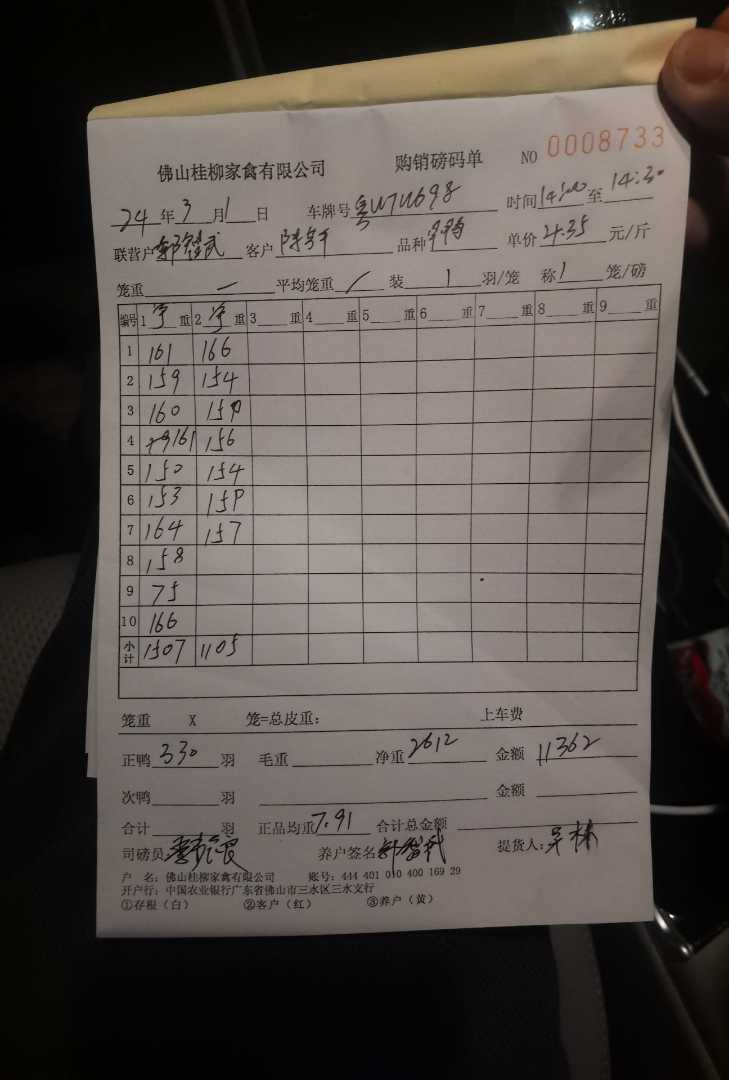 佛山桂柳家禽有限公司 购销磅码单 NO 0008733
24年3月1日 车牌号粤U7U698 时间14:00至14:30
联营户 客户 品种 单价4.35元/斤
笼重 一 平均笼重 / 装 1 羽/笼 称 1 笼/磅
编号 1 净 重 2 净 重 3 重 4 重 5 重 6 重 7 重 8 重 9 重
1 161 166
2 159 154
3 160 159
4 161 156
5 150 154
6 153 159
7 164 157
8 158
9 75
10 166
小计 1507 1105
笼重 X 笼=总皮重: 上车费
正鸭 330 羽 毛重 净重 2612 金额 11362
次鸭 羽 金额
合计 羽 正品均重 7.91 合计总金额
司磅员 养户签名 提货人:
户 名: 佛山桂柳家禽有限公司 账号: 444 401 010 400 169 29
开户行: 中国农业银行广东省佛山市三水区三水支行
①存根(白) ②客户(红) ③养户(黄)